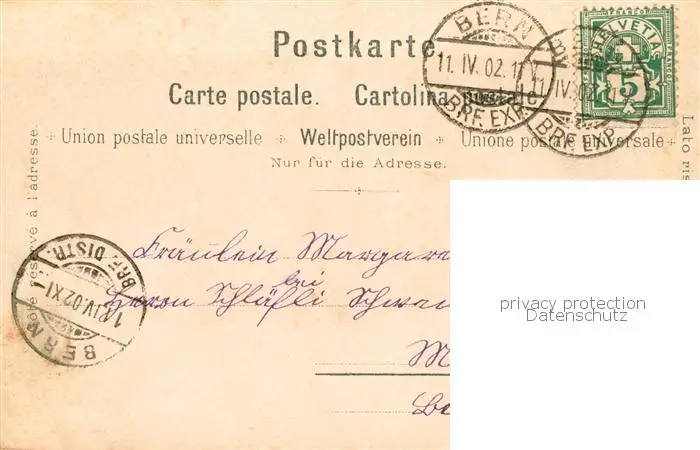 Postkarte.
BERN
11. IV. 02. 1
BRF. EXP.
11. IV. 02
BRF. EXP.
HELVETIA
FRANCO
5
Carte postale. Cartolina postale.
Union postale universelle Weltpostverein Unione postale universale
Nur für die Adresse.
Côté réservé à l'adresse.
Lato ris
BRF. DISTR.
IV. 02 XI
BERN
Fräulein Margare
bei
Herrn Schläfli Schwei
M
Be
privacy protection
Datenschutz